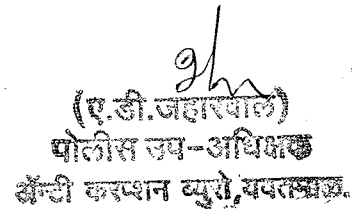 (ए.डी.जहारवाल)
पोलीस उप-अधिक्षक
ॲन्टी करप्शन ब्युरो,यवतमाळ.